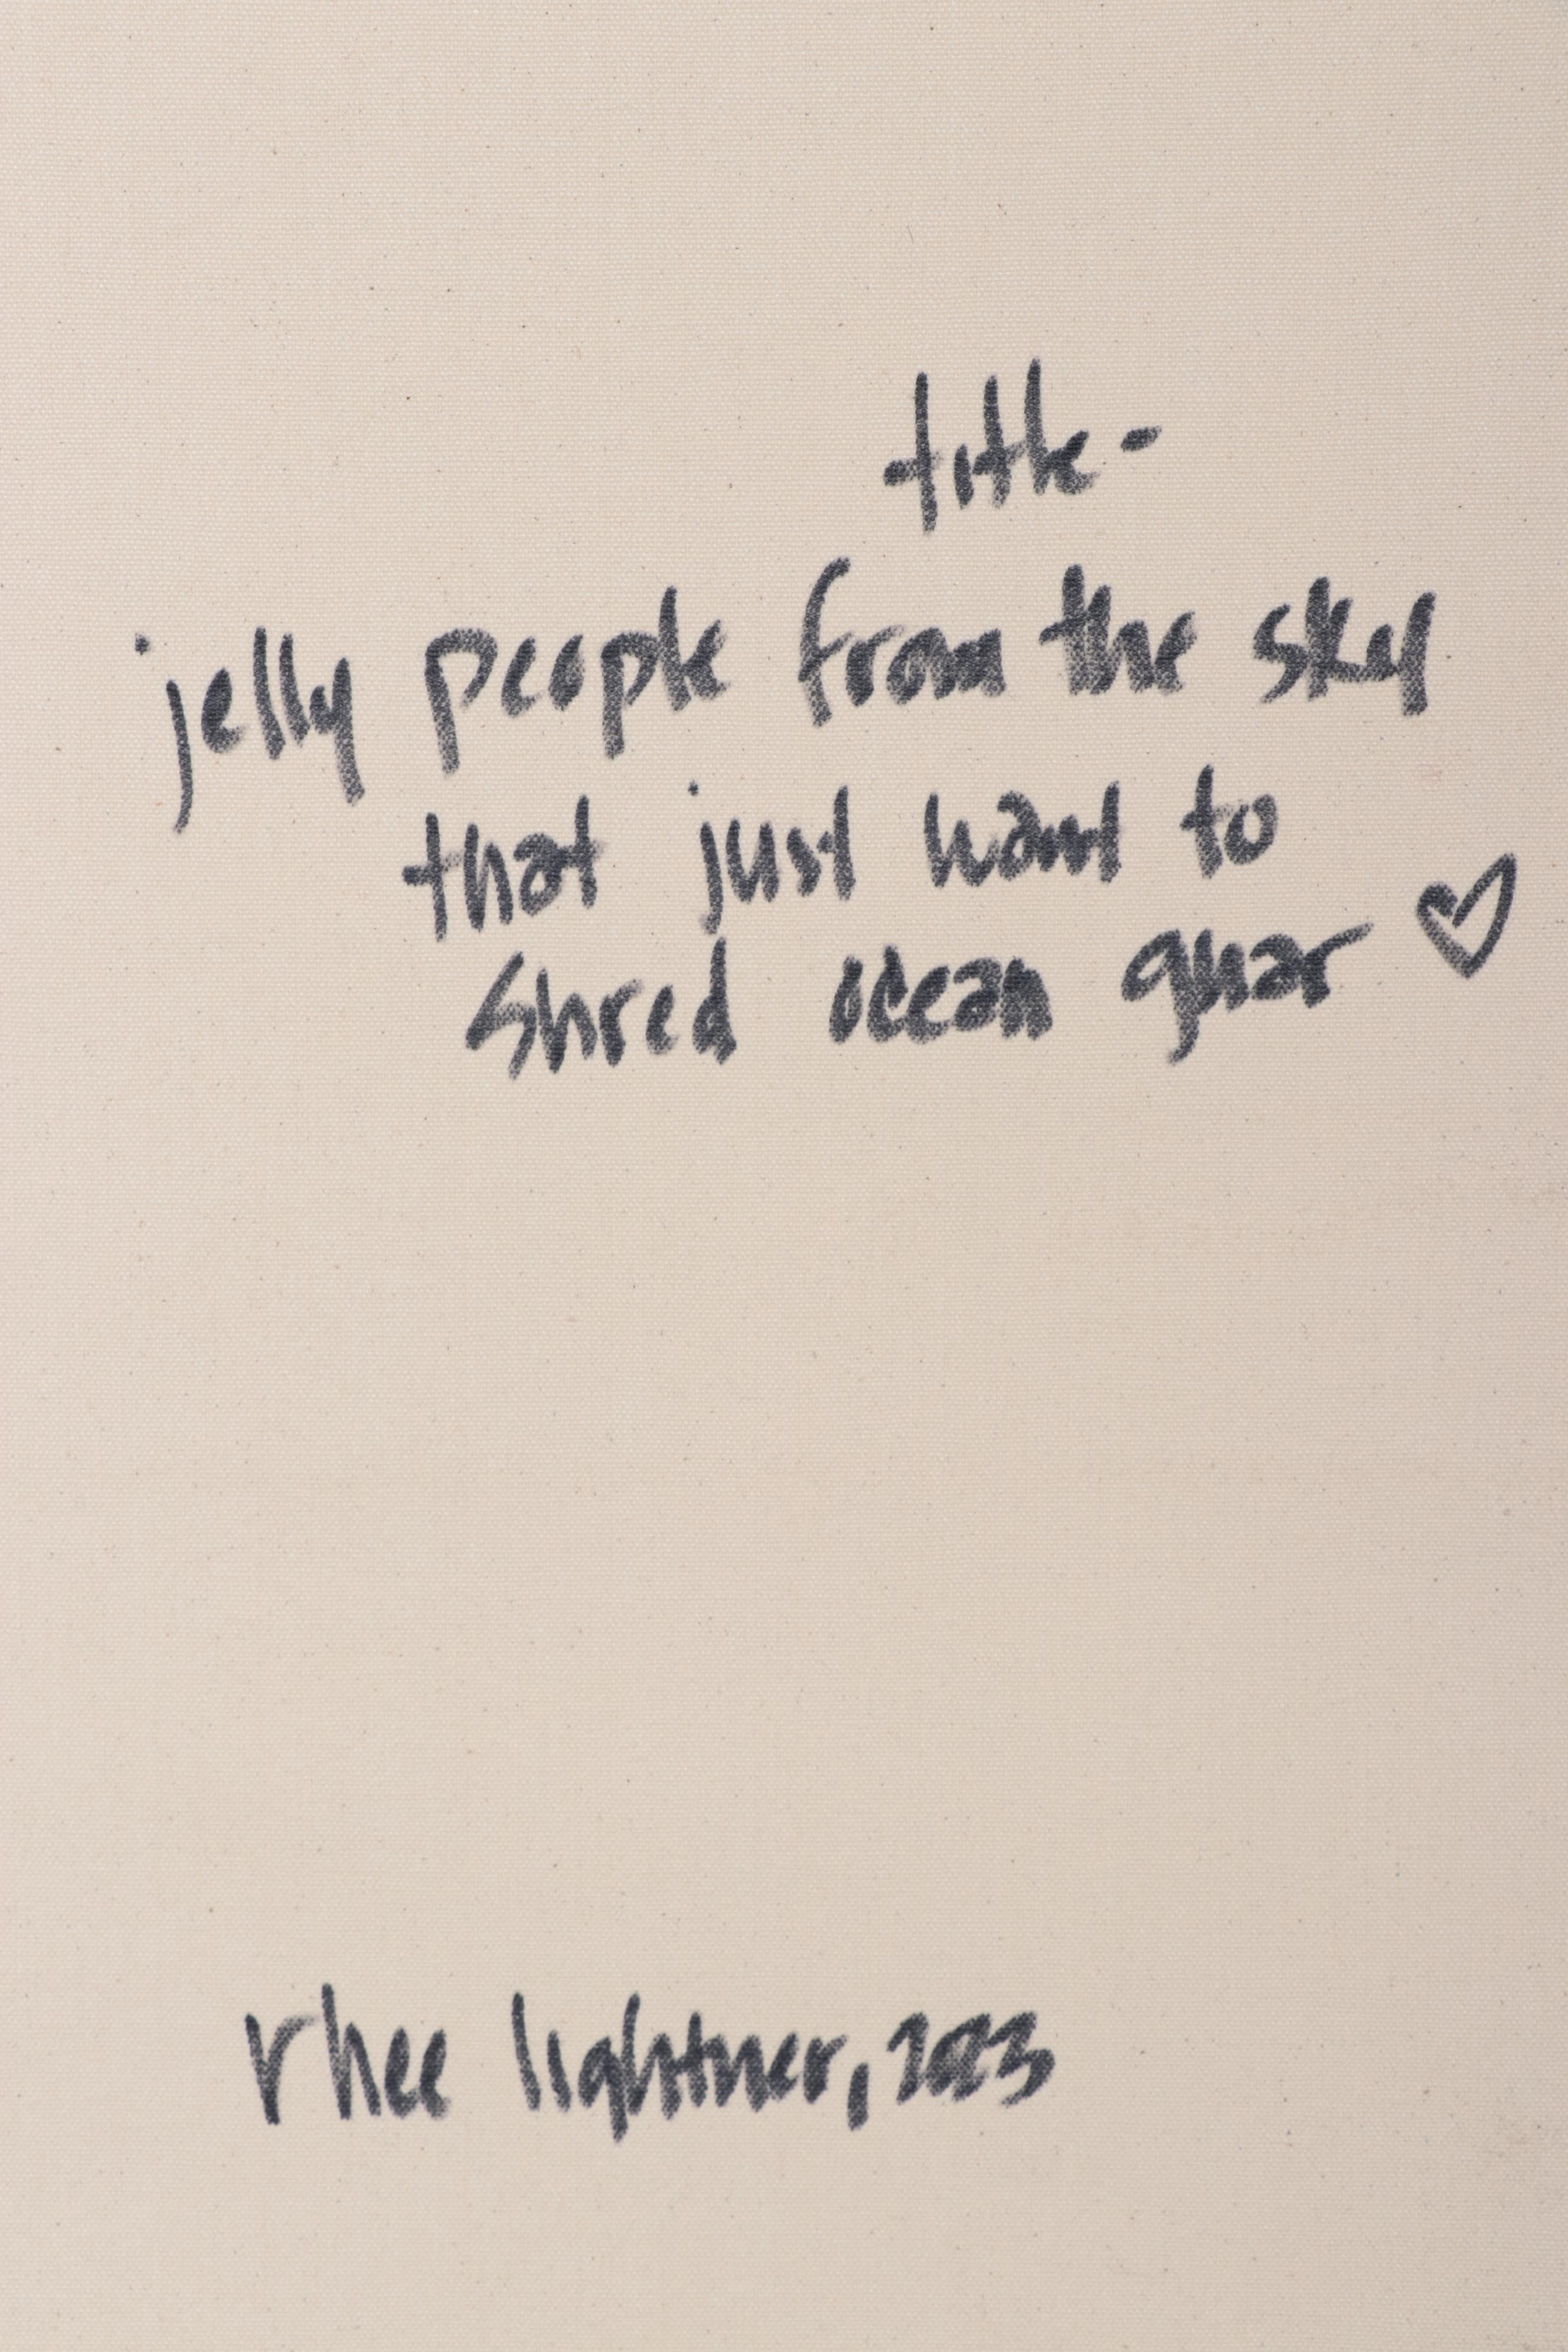 title-
jelly people from the sky
that just want to
shred ocean gnar ♡
rhee lightner, 2023